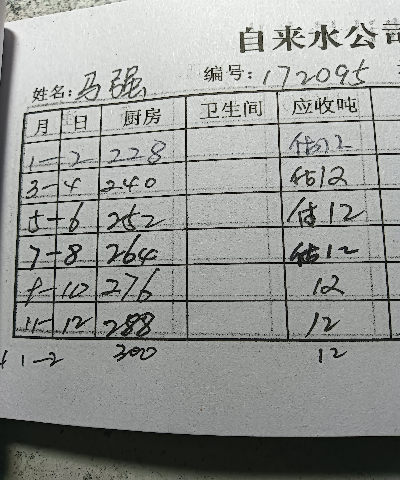 自来水公司
姓名:马强 编号:172095
月 日 厨房 卫生间 应收吨
1-2 228 估12
3-4 240 估12
5-6 252 估12
7-8 264 估12
9-10 276 12
11-12 288 12
1-2 300 12